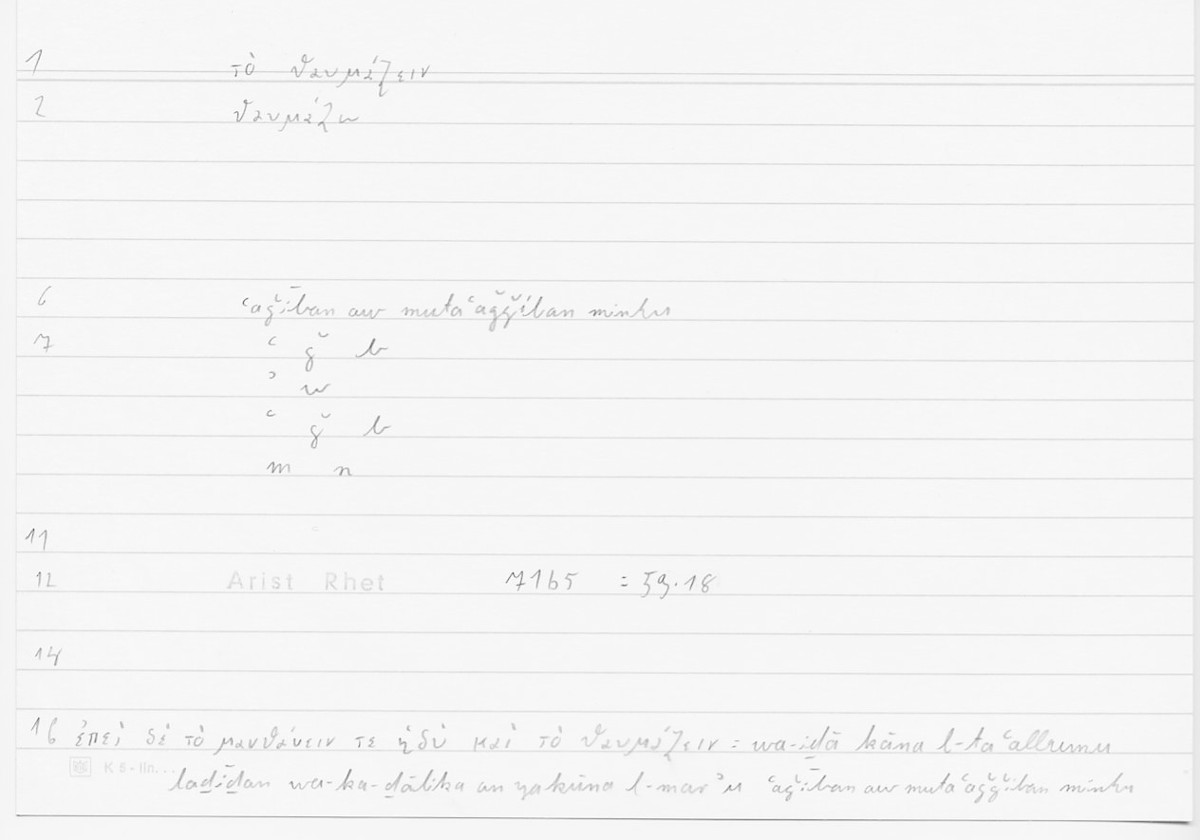 1 τὸ θαυμάζειν
2 θαυμάζω
6 ʿaǧīban aw mutaʿaǧǧiban minhu
7 ʿ ǧ b
ʾ w
ʿ ǧ b
m n
11
12 Arist Rhet 71b5 = 59.18
14
16 ἐπεὶ δὲ τὸ μανθάνειν τε ἡδὺ καὶ τὸ θαυμάζειν = wa-iḏā kāna l-taʿallumu
K5-lin...
laḏīḏan wa-ka-ḏālika an yakūna l-marʾu ʿaǧīban aw mutaʿaǧǧiban minhu